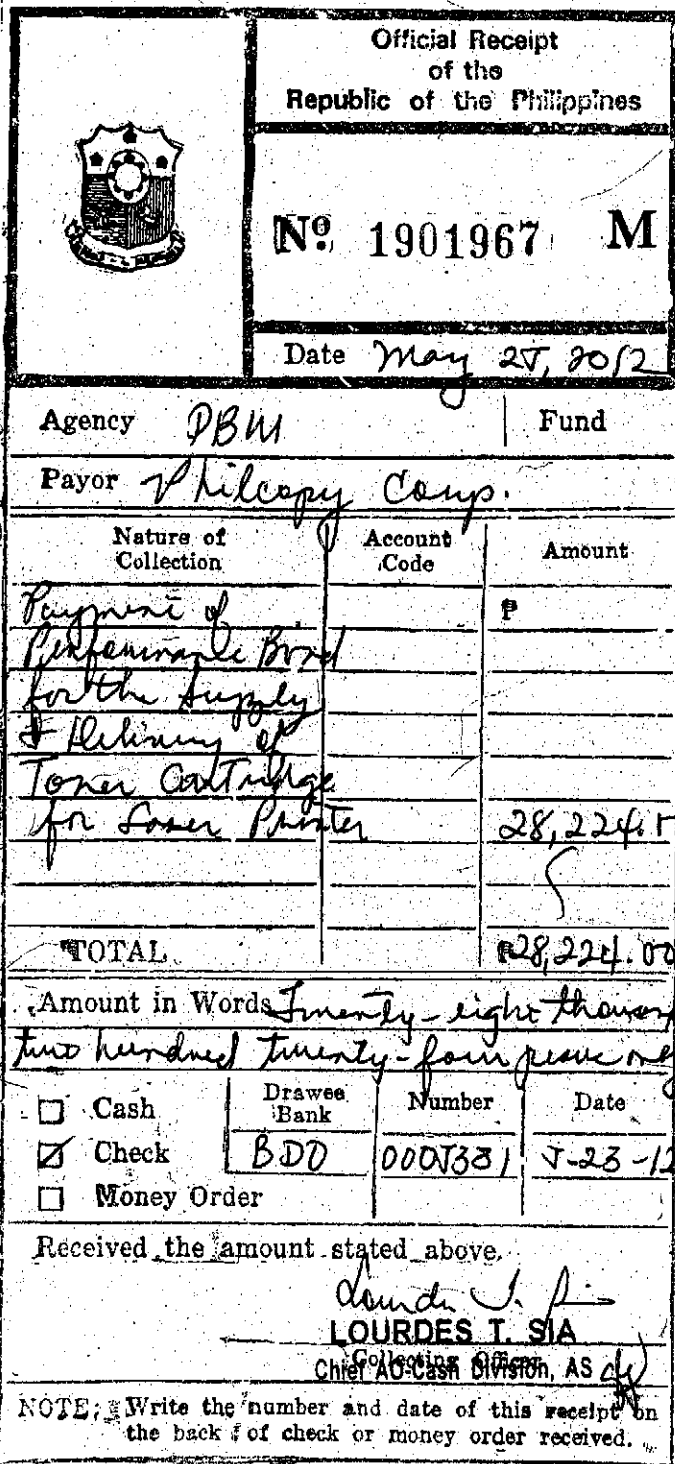 Official Receipt
of the
Republic of the Philippines
Nº 1901967 M
Date May 25, 2012
Agency DBM Fund
Payor Philcopy Corp.
Nature of Collection Account Code Amount
Payment of ₱
Performance Bond
for the Supply
& Delivery of
Toner Cartridge
for Laser Printer 28,224.
TOTAL ₱28,224.00
Amount in Words Twenty-eight thousan
two hundred twenty-four pesos only
Cash Drawee Bank Number Date
Check BDO 0005381 5-23-12
Money Order
Received the amount stated above.
LOURDES T. SIA
Collecting Officer
Chief AO-Cash Division, AS
NOTE: Write the number and date of this receipt on
the back of check or money order received.